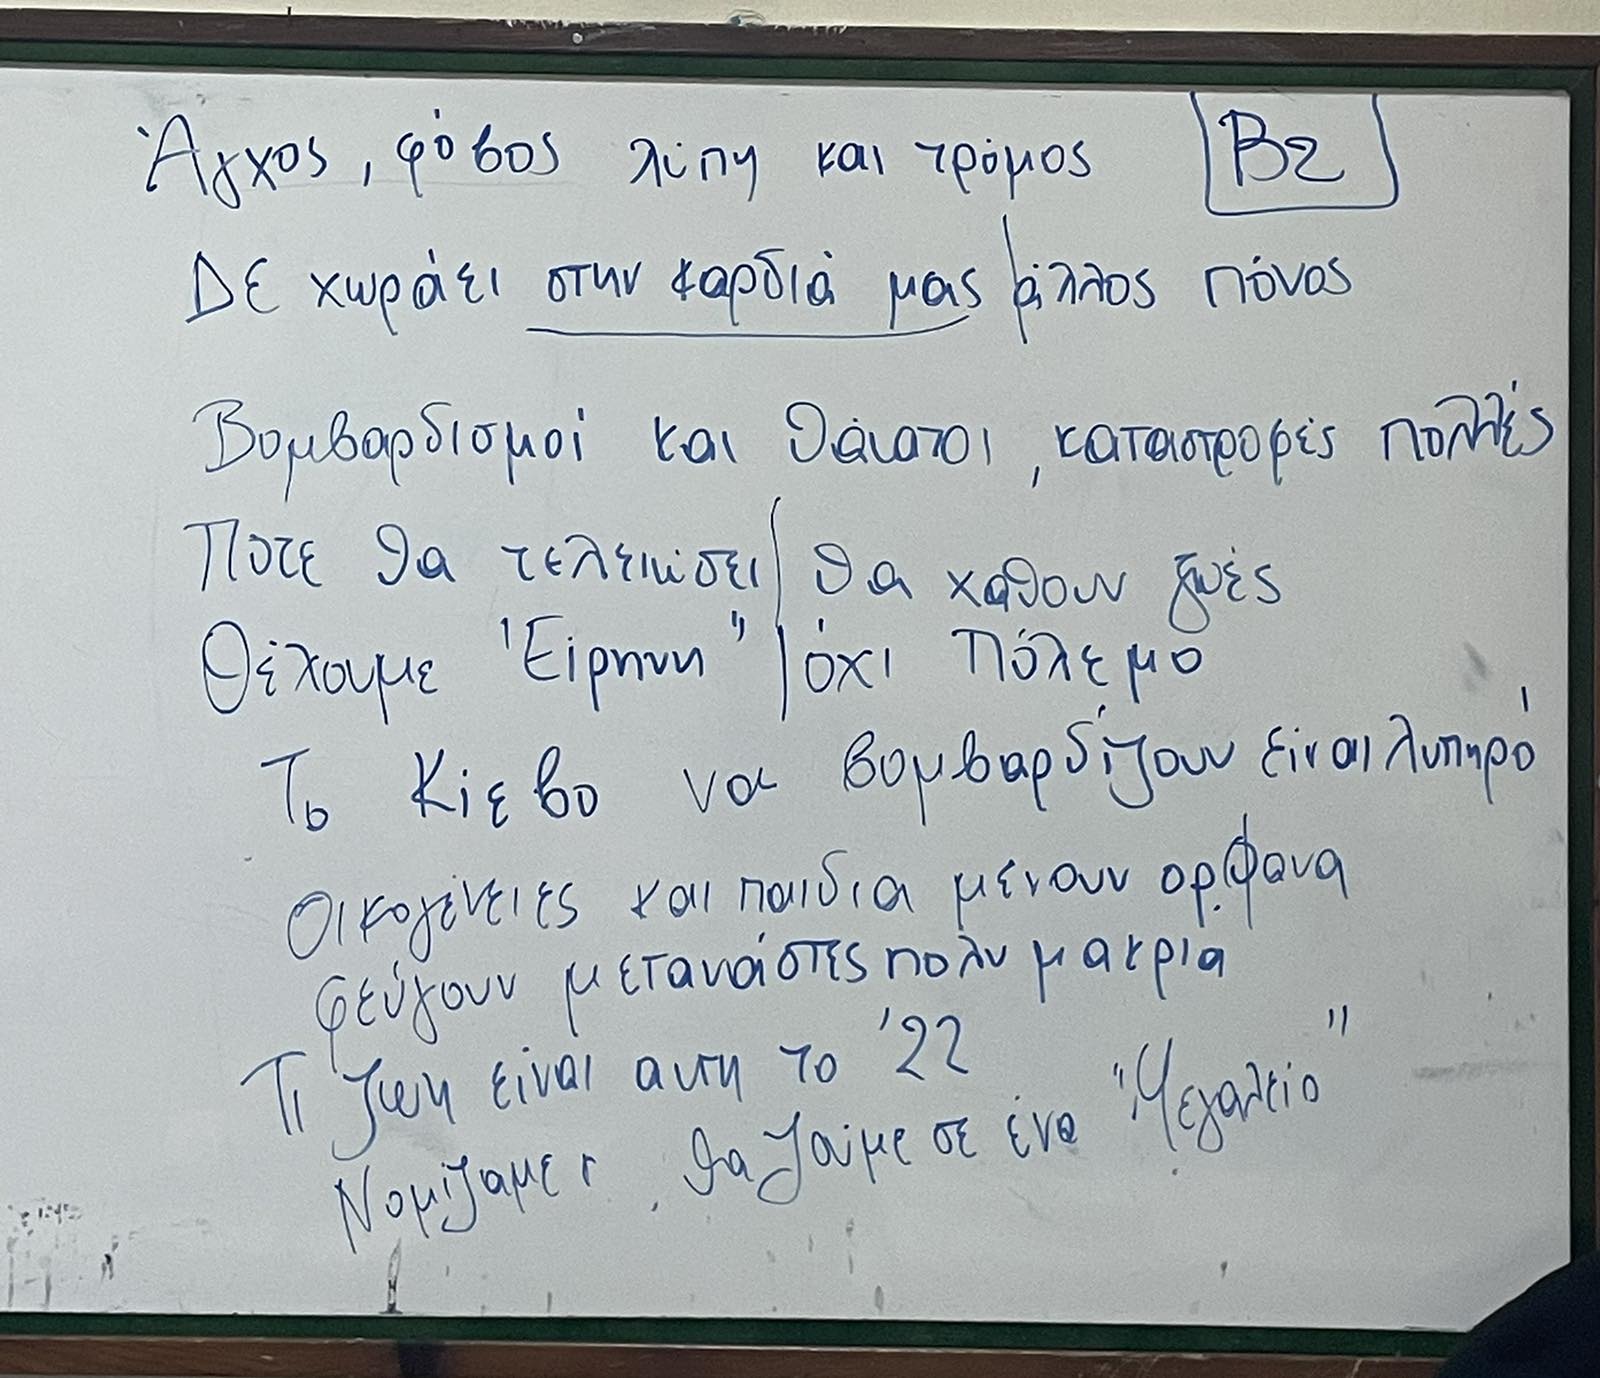 Άγχος, φόβος λύπη και τρόμος B2
Δε χωράει στην καρδιά μας άλλος πόνος
Βομβαρδισμοί και θάνατοι, καταστροφές πολλές
Ποτε θα τελειώσει θα χαθουν ζωές
Θέλουμε "Είρηνη" όχι Πόλεμο
Το Κίεβο να βομβαρδίζουν είναι λυπηρό
Οικογένειες και παιδια μένουν ορφανα
φεύγουν μετανάστες πολυ μακρια
Τι ζωη είναι αυτη το '22
Νομιζαμε θα ζούμε σε ένα "Μεγαλείο"